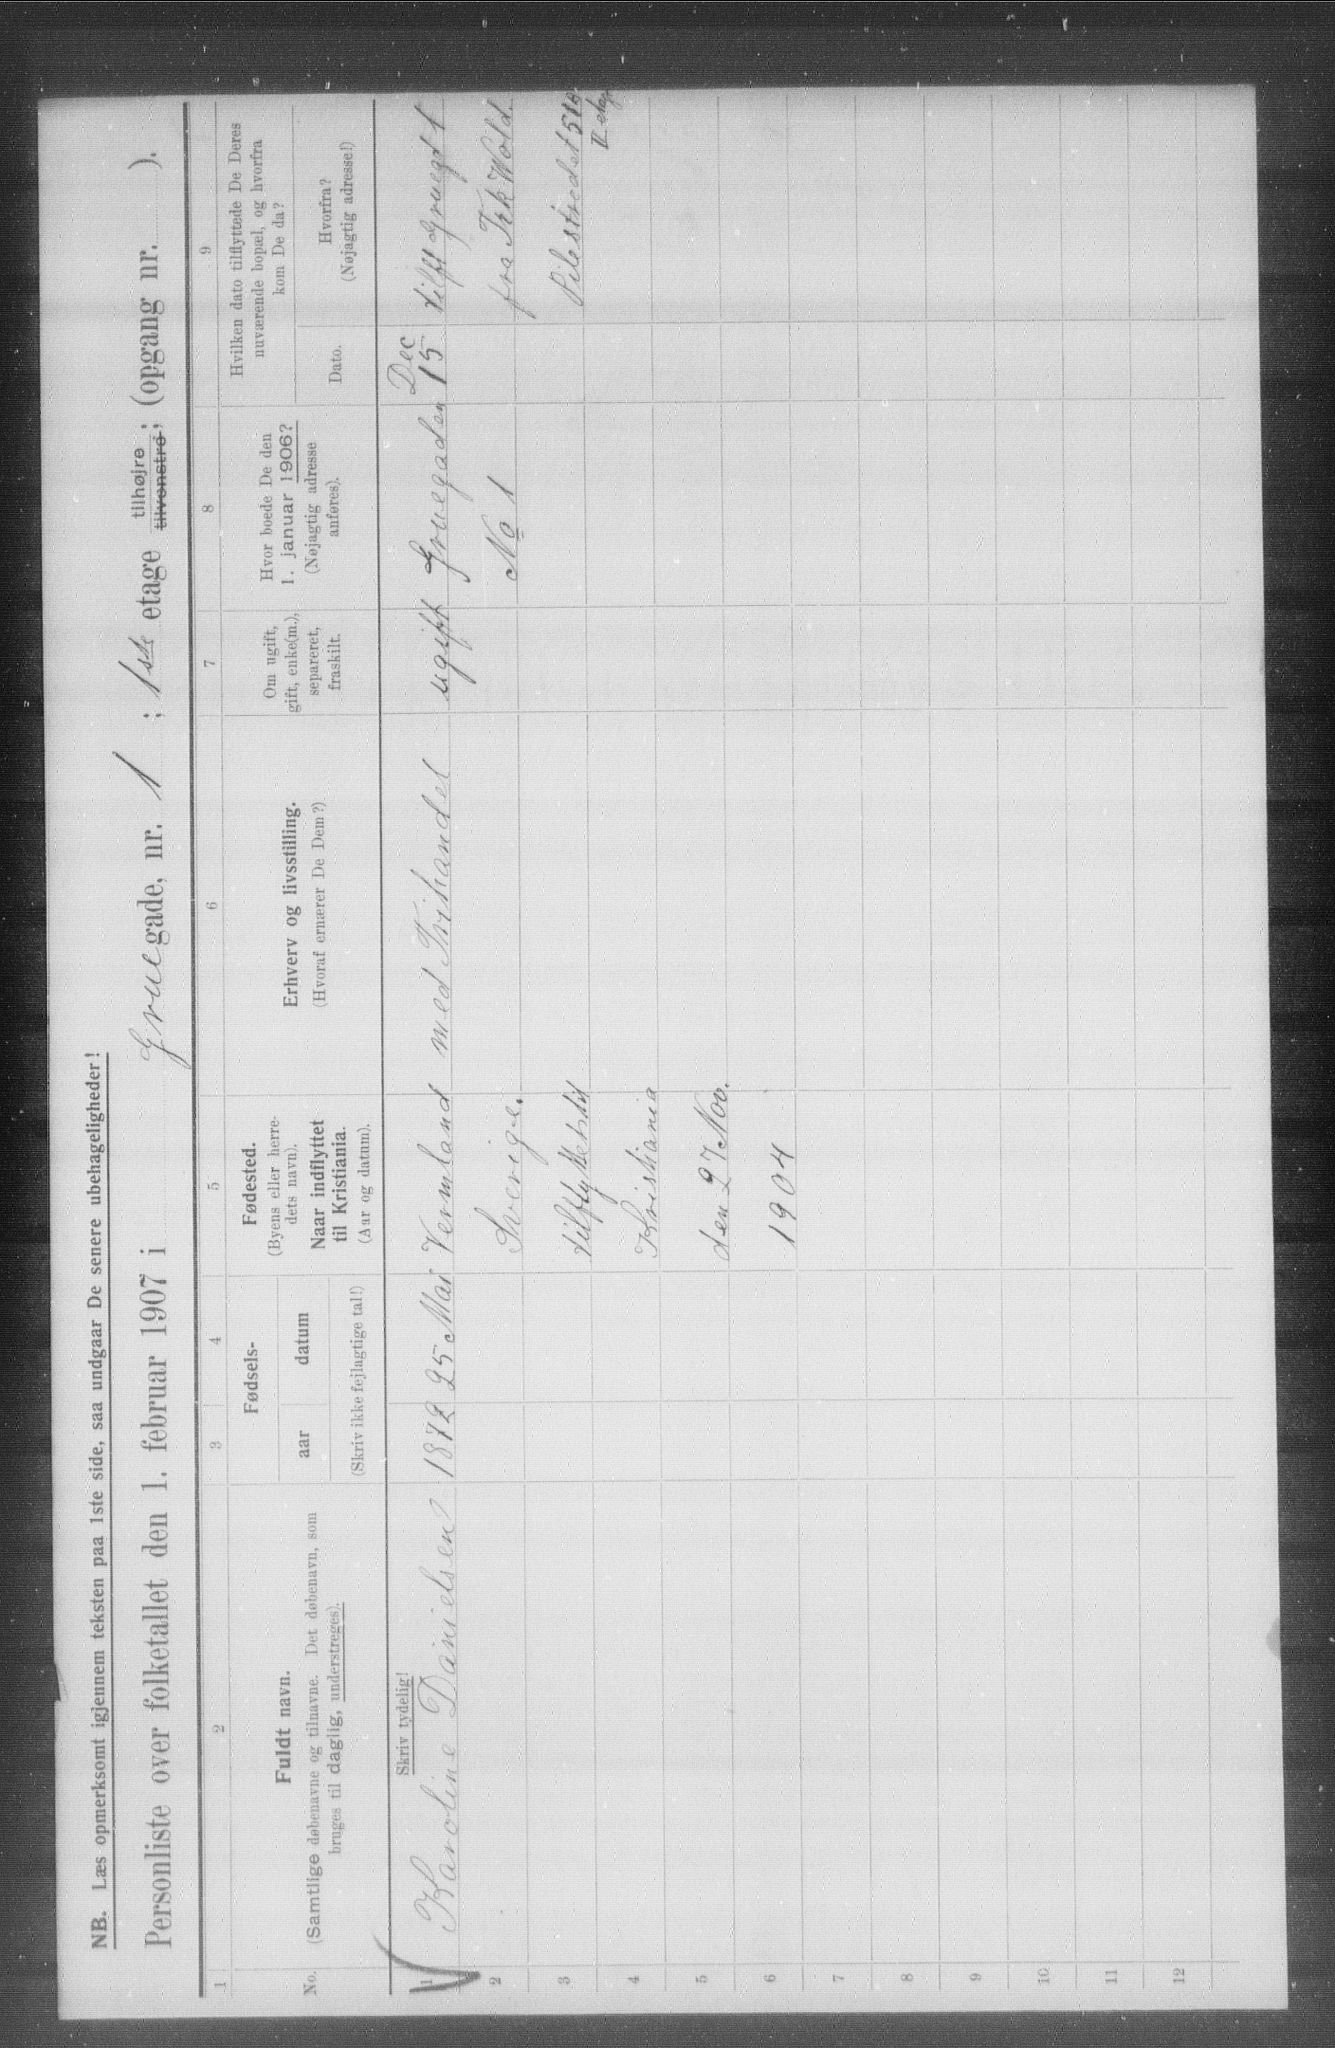 NB. Læs opmerksomt igjennem teksten paa 1ste side, saa undgaar De senere ubehageligheder!
Personliste over folketallet den 1. februar 1907 i Gruegade, nr. 1 ; 1ste etage tilhøjre ; tilvenstre; (opgang nr. ).
1 2 3 4 5 6 7 8 9
No.
Fuldt navn.
(Samtlige døbenavne og tilnavne. Det døbenavn, som
bruges til daglig, understreges).
Fødsels-
aar datum
(Skriv ikke fejlagtige tal!)
Fødested.
(Byens eller herre-
dets navn).
Naar indflyttet
til Kristiania.
(Aar og datum).
Erhverv og livsstilling.
(Hvoraf ernærer De Dem?)
Om ugift,
gift, enke(m.),
separeret,
fraskilt.
Hvor boede De den
1. januar 1906?
(Nøjagtig adresse
anføres).
Hvilken dato tilflyttede De Deres
nuværende bopæl, og hvorfra
kom De da?
Dato.
Hvorfra?
(Nøjagtig adresse!)
Skriv tydelig!
1 Karoline Danielsen 1872 25 Mai Vermland med ugift Gruegaden Dec 15 tilfl Gruegt 1
2 Sverige. No 1 fra Wold.
3 tilflyttet til Pilestrædet
4 Kristiania
5 den 27 Nov.
6 1904
7
8
9
10
11
12